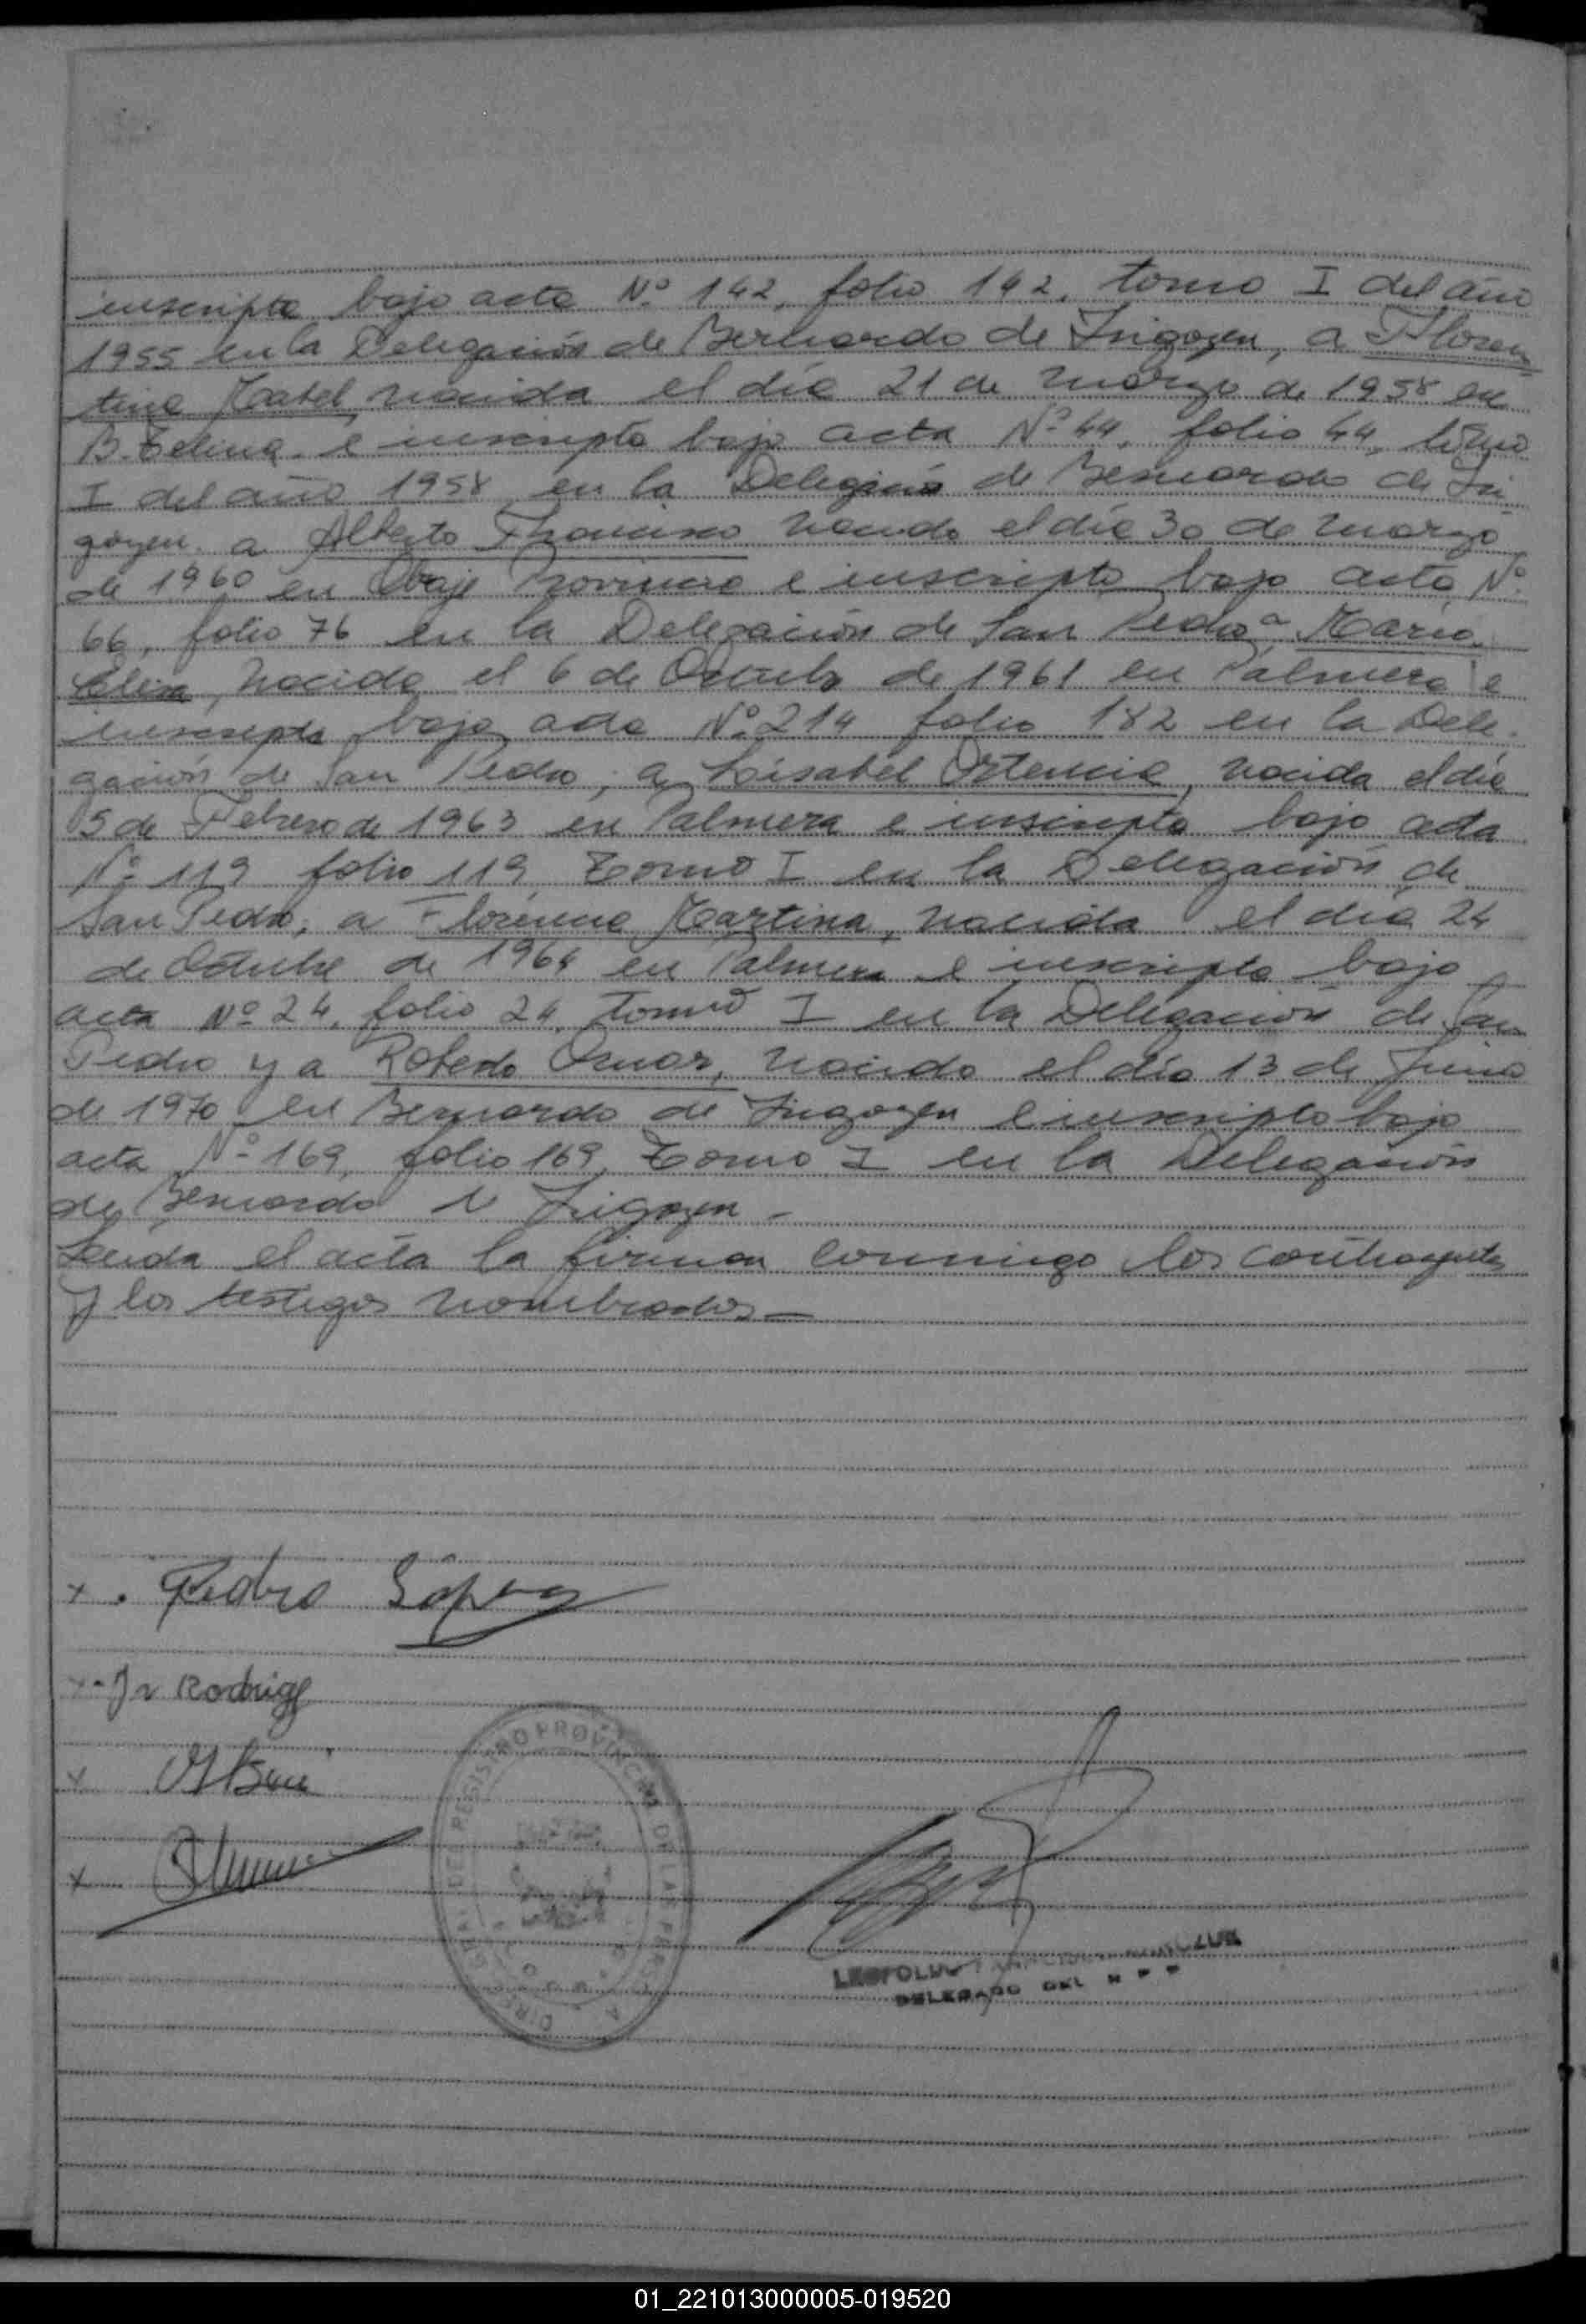 inscripta bajo acta Nº 142, folio 142, tomo I del año
1955 en la Delegación de Bernardo de Irigoyen, a Floren
tina Mabel, nacida el día 21 de marzo de 1958 en
B. e inscripta bajo acta Nº 44, folio 44, tomo
I del año 1958 en la Delegación de Bernardo de Iri
goyen. a Alberto Francisco nacido el día 30 de marzo
de 1960 en Obaje e inscripto bajo acta Nº
66, folio 76 en la Delegación de San Pedro a María
Elisa, nacida el 6 de Octubre de 1961 en Palmera e
inscripta bajo acta Nº 214 folio 182 en la Dele
gación de San Pedro, a Lisabel Ortencia, nacida el día
5 de Febrero de 1963 en Palmera e inscripta bajo acta
Nº 119 folio 119, Tomo I en la Delegación de
San Pedro, a Florencia Martina, nacida el día 24
de Octubre de 1964 en Palmera e inscripta bajo
acta Nº 24, folio 24, tomo I en la Delegación de San
Pedro y a Roberto Omar, nacido el día 13 de Junio
de 1970 en Bernardo de Irigoyen e inscripto bajo
acta Nº 169, folio 169, Tomo I en la Delegación
de Bernardo de Irigoyen -
Leída el acta la firman conmigo los contrayentes
y los testigos nombrados -
x . Pedro López
x - Rodrigz
x
x
REGISTRO PROVINCIAL DE LAS PERSONAS
LEOPOLDO
DELEGADO DEL R P P
01_221013000005-019520